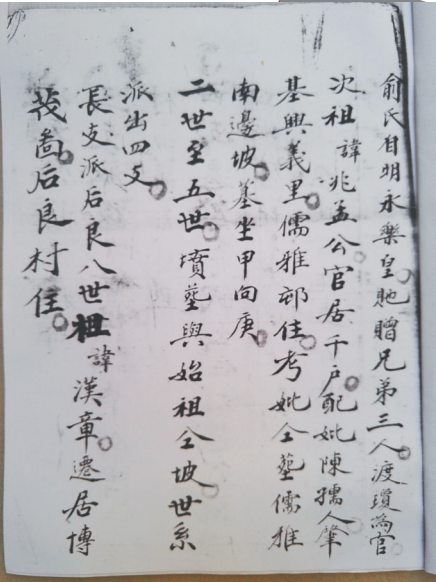 俞氏自明永樂皇𠡠贈兄弟三人渡瓊為官
次祖諱兆孟公官居千戶配妣陳孺人肇
基興義里儒雅邨住考妣仝塟儒雅
南邊坡墓坐甲向庚
二世至五世墳塟與始祖仝坡世系
派出四支
長支派后良八世祖諱漢章遷居博
茂啚后良村住